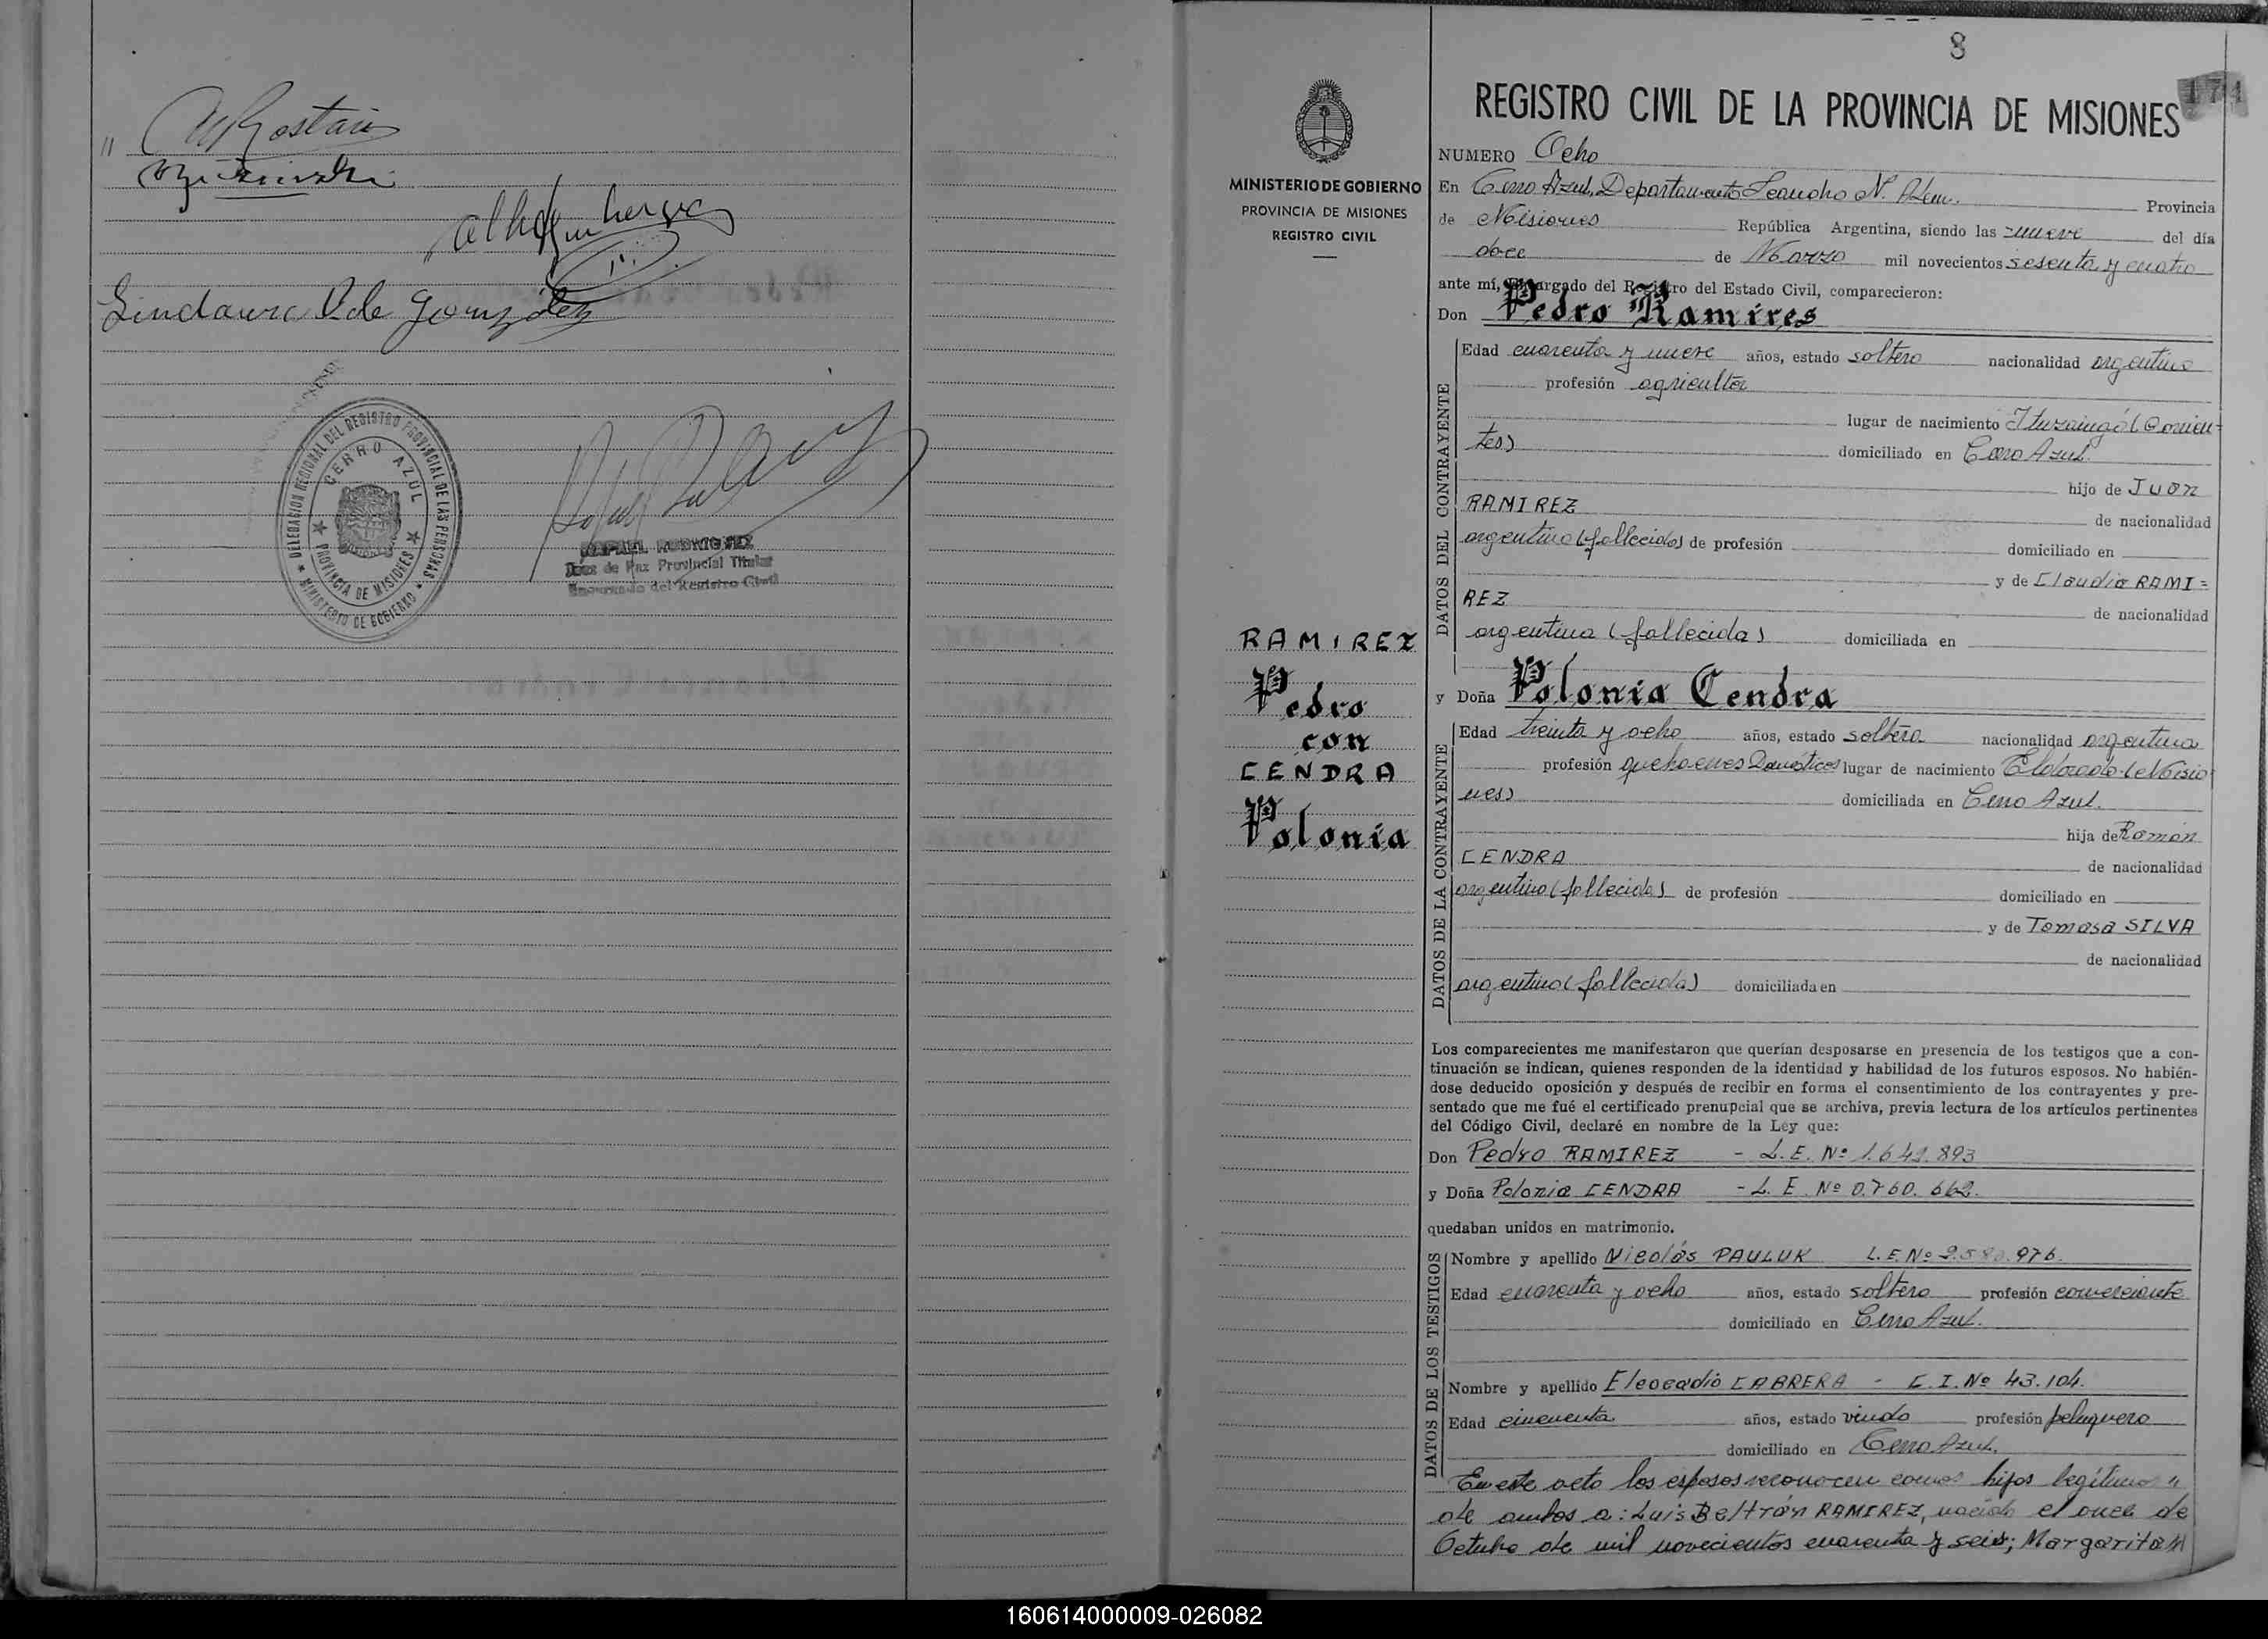 "
Lindaura V. de González
DELEGACION REGIONAL DEL REGISTRO PROVINCIAL DE LAS PERSONAS
CERRO AZUL
PROVINCIA DE MISIONES
MINISTERIO DE GOBIERNO
RAFAEL RODRIGUEZ
Juez de Paz Provincial Titular
Encargado del Registro Civil
8
174
REGISTRO CIVIL DE LA PROVINCIA DE MISIONES
MINISTERIO DE GOBIERNO
PROVINCIA DE MISIONES
REGISTRO CIVIL
NUMERO Ocho
En Cerro Azul, Departamento Leandro N. Alem. Provincia
de Misiones República Argentina, siendo las nueve del día
doce de Marzo mil novecientos sesenta y cuatro
ante mí, Encargado del Registro del Estado Civil, comparecieron:
Don Pedro Ramires
DATOS DEL CONTRAYENTE
Edad cuarenta y nueve años, estado soltero nacionalidad argentino
profesión agricultor
lugar de nacimiento Ituzaingó (Corrien-
tes) domiciliado en Cerro Azul.
hijo de Juan
RAMIREZ de nacionalidad
argentino (fallecido) de profesión domiciliado en
y de Claudia RAMI=
REZ de nacionalidad
argentina (fallecida) domiciliada en
RAMIREZ
Pedro
con
CENDRA
Polonia
y Doña Polonia Cendra
DATOS DE LA CONTRAYENTE
Edad treinta y ocho años, estado soltera nacionalidad argentina
profesión quehaceres Domésticos lugar de nacimiento Eldorado (Misio
nes) domiciliada en Cerro Azul.
hija de Ramón
CENDRA de nacionalidad
argentino (fallecido) de profesión domiciliado en
y de Tomasa SILVA
de nacionalidad
argentina (fallecida) domiciliada en
Los comparecientes me manifestaron que querían desposarse en presencia de los testigos que a con-
tinuación se indican, quienes responden de la identidad y habilidad de los futuros esposos. No habién-
dose deducido oposición y después de recibir en forma el consentimiento de los contrayentes y pre-
sentado que me fué el certificado prenupcial que se archiva, previa lectura de los artículos pertinentes
del Código Civil, declaré en nombre de la Ley que:
Don Pedro RAMIREZ - L.E. Nº 1.642.893
y Doña Polonia CENDRA - L.E. Nº 0.760.662.
quedaban unidos en matrimonio.
DATOS DE LOS TESTIGOS
Nombre y apellido Nicolás PAULUK L.E. Nº
Edad cuarenta y ocho años, estado soltero profesión comerciante
domiciliado en Cerro Azul.
Nombre y apellido Eleocadio CABRERA - C.I. Nº 43.104.
Edad cincuenta años, estado viudo profesión peluquero
domiciliado en Cerro Azul.
En este acto los esposos reconocen como hijos legítimos "
de ambos a: Luis Beltrán RAMIREZ, nacido el once de
Octubre de mil novecientos cuarenta y seis; Margarita //
160614000009-026082